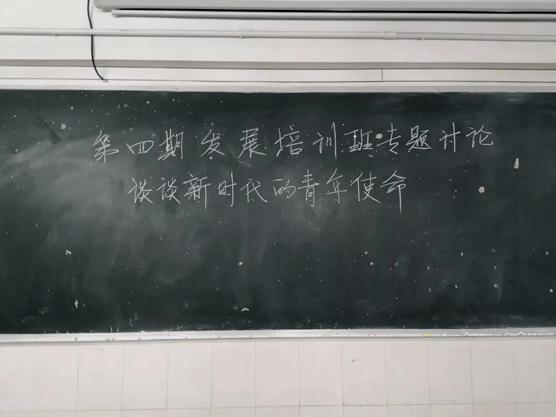 第四期发展培训班专题讨论
谈谈新时代的青年使命